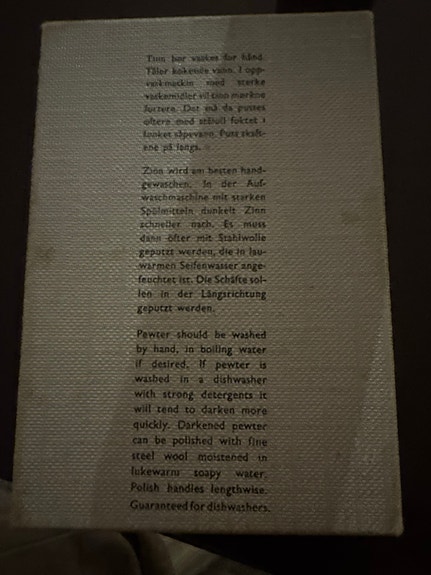 Tinn bør vaskes for hånd.
Tåler kokende vann. I opp-
vaskmaskin med sterke
vaskemidler vil tinn mørkne
fortere. Det må da pusses
oftere med stålull fuktet i
lunket såpevann. Puss skaft-
ene på langs.
Zinn wird am besten hand-
gewaschen. In der Auf-
waschmaschine mit starken
Spülmitteln dunkelt Zinn
schneller nach. Es muss
dann öfter mit Stahlwolle
geputzt werden, die in lau-
warmen Seifenwasser ange-
feuchtet ist. Die Schäfte sol-
len in der Längsrichtung
geputzt werden.
Pewter should be washed
by hand, in boiling water
if desired. If pewter is
washed in a dishwasher
with strong detergents it
will tend to darken more
quickly. Darkened pewter
can be polished with fine
steel wool moistened in
lukewarm soapy water.
Polish handles lengthwise.
Guaranteed for dishwashers.